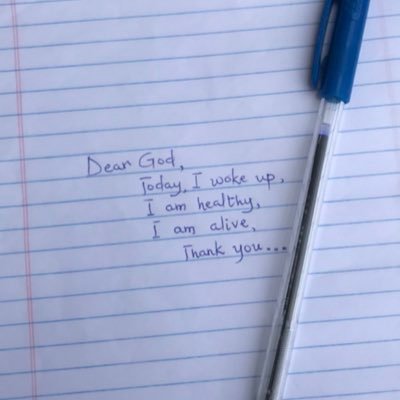 Dear God,
Today, I woke up,
I am healthy,
I am alive,
Thank you...